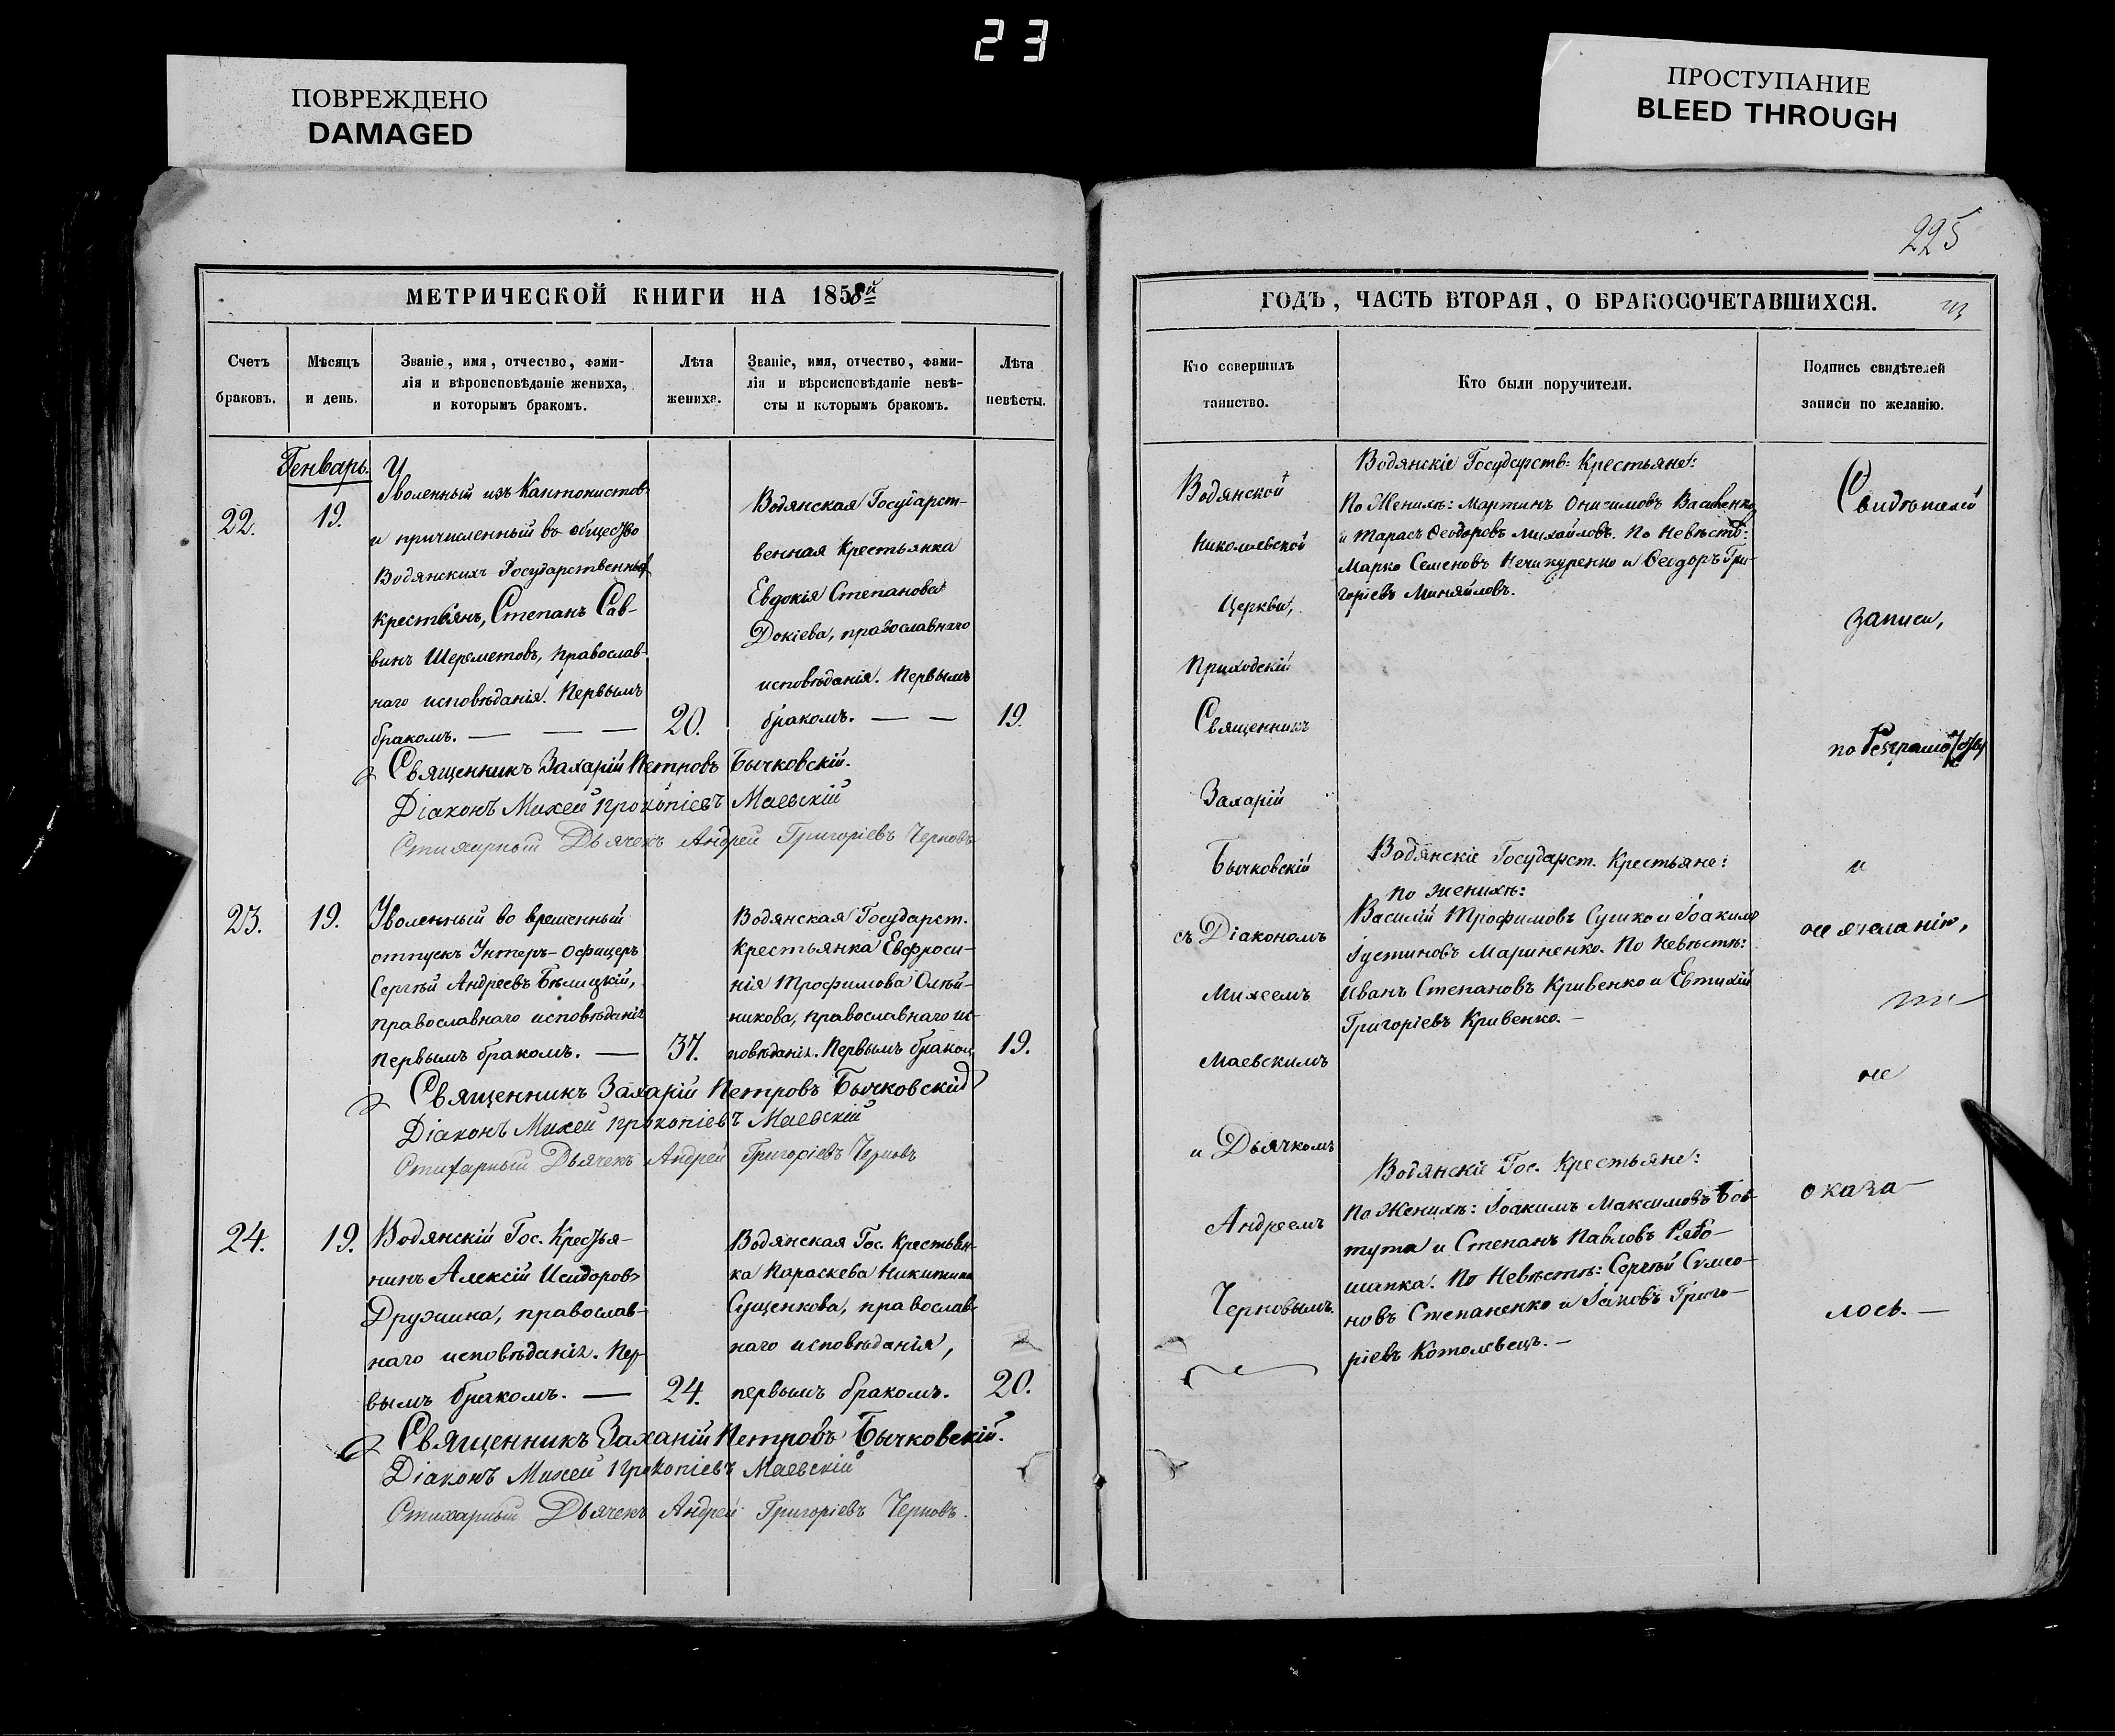 23
ПОВРЕЖДЕНО
DAMAGED
ПРОСТУПАНИЕ
BLEED THROUGH
МЕТРИЧЕСКОЙ КНИГИ НА 1858й
Счетъ
браковъ.
Мѣсяцъ
и день.
Званіе, имя, отчество, фами-
лія и вѣроисповѣданіе жениха,
и которымъ бракомъ.
Лѣта
жениха.
Званіе, имя, отчество, фами-
лія и вѣроисповѣданіе невѣ-
сты и которымъ бракомъ.
Лѣта
невѣсты.
Генварь.
22.
19.
Уволенный изъ Кантонистовъ
и причисленный въ общество
Водянскихъ Государственныхъ
крестьянъ, Степанъ Сав-
винъ Шереметовъ, православ-
наго исповѣданія. Первымъ
бракомъ.
20.
Водянская Государст-
венная Крестьянка
Евдокія Степанова
Докіева, православнаго
исповѣданія. Первымъ
бракомъ.
19.
Священникъ Захарій Петровъ Бычковскій.
Діаконъ Михей Прокопіевъ Маевскій
Стихарный Дьячекъ Андрей Григоріевъ Черновъ
23.
19.
Уволенный во временный
отпускъ Унтеръ-Офицеръ
Сергѣй Андреевъ Бѣлицкій,
православнаго исповѣданія
Первымъ бракомъ.
37.
Водянская Государст.
Крестьянка Евфроси-
нія Трофимова Олѣй-
никова, православнаго ис-
повѣданія. Первымъ бракомъ
19.
Священникъ Захарій Петровъ Бычковскій
Діаконъ Михей Прокопіевъ Маевскій
Стихарный Дьячекъ Андрей Григоріевъ Черновъ
24.
19.
Водянскій Гос. Крестья-
нинъ Алексій Исидоровъ
Дружина, православ-
наго исповѣданія. Пер-
вымъ бракомъ.
24.
Водянская Гос. Крестьян-
ка Параскева Никитина
Сущенкова, православ-
наго исповѣданія,
первымъ бракомъ.
20.
Священникъ Захарій Петровъ Бычковскій.
Діаконъ Михей Прокопіевъ Маевскій
Стихарный Дьячекъ Андрей Григоріевъ Черновъ.
225
ГОДЪ, ЧАСТЬ ВТОРАЯ, О БРАКОСОЧЕТАВШИХСЯ.
Кто совершилъ
таинство.
Кто были поручители.
Подпись свидѣтелей
записи по желанію.
Водянской
Николаевской
Церкви,
Приходскій
Священникъ
Захарій
Бычковскій
съ Діакономъ
Михеемъ
Маевскимъ
и Дьячкомъ
Андреемъ
Черновымъ.
Водянскіе Государств: Крестьяне:
По Женихѣ: Мартинъ Онисимовъ Василенко
и Тарасъ Ѳеодоровъ Михайловъ. По Невѣстѣ:
Марко Семеновъ Нечипуренко и Ѳеодоръ Гри-
горіевъ Миняйловъ.
Водянскіе Государст. Крестьяне:
По Женихѣ:
Василій Трофимовъ Сушко и Іоакимъ
Іустиновъ Мариненко. По Невѣстѣ:
Иванъ Степановъ Кривенко и Евтихій
Григоріевъ Кривенко.
Водянскіе Гос. Крестьяне:
По Женихѣ: Іоакимъ Максимовъ Бов-
тута и Степанъ Павловъ Рябо-
шапка. По Невѣстѣ: Сергѣй Симео-
новъ Степаненко и Іаковъ Григо-
ріевъ Котолевецъ.
Свидѣтелей
записи,
по
и
не желанію,
не
оказа
лось.